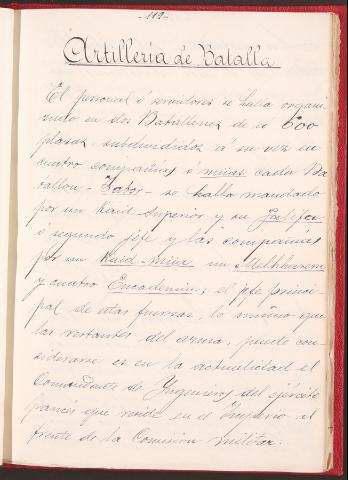 -112-
Artillería de Batalla
El personal ó servidores se halla organi
zado en dos Batallones de á 600
plazas, subdivididos á su vez en
cuatro compañias ó miias cada Ba
tallon - Tabor - se halla mandado
por un Kaid Superior y su Jalifa
ó segundo jefe y las compañias
por un Kaid-Miia un
y cuatro ; el jefe princi
pal de estas fuerzas, lo mismo que
las restantes del arma, puede con-
siderarse es en la actualidad el
Comandante de Yngenieros del ejército
francés que reside en el Imperio al
frente de la Comisión militar.